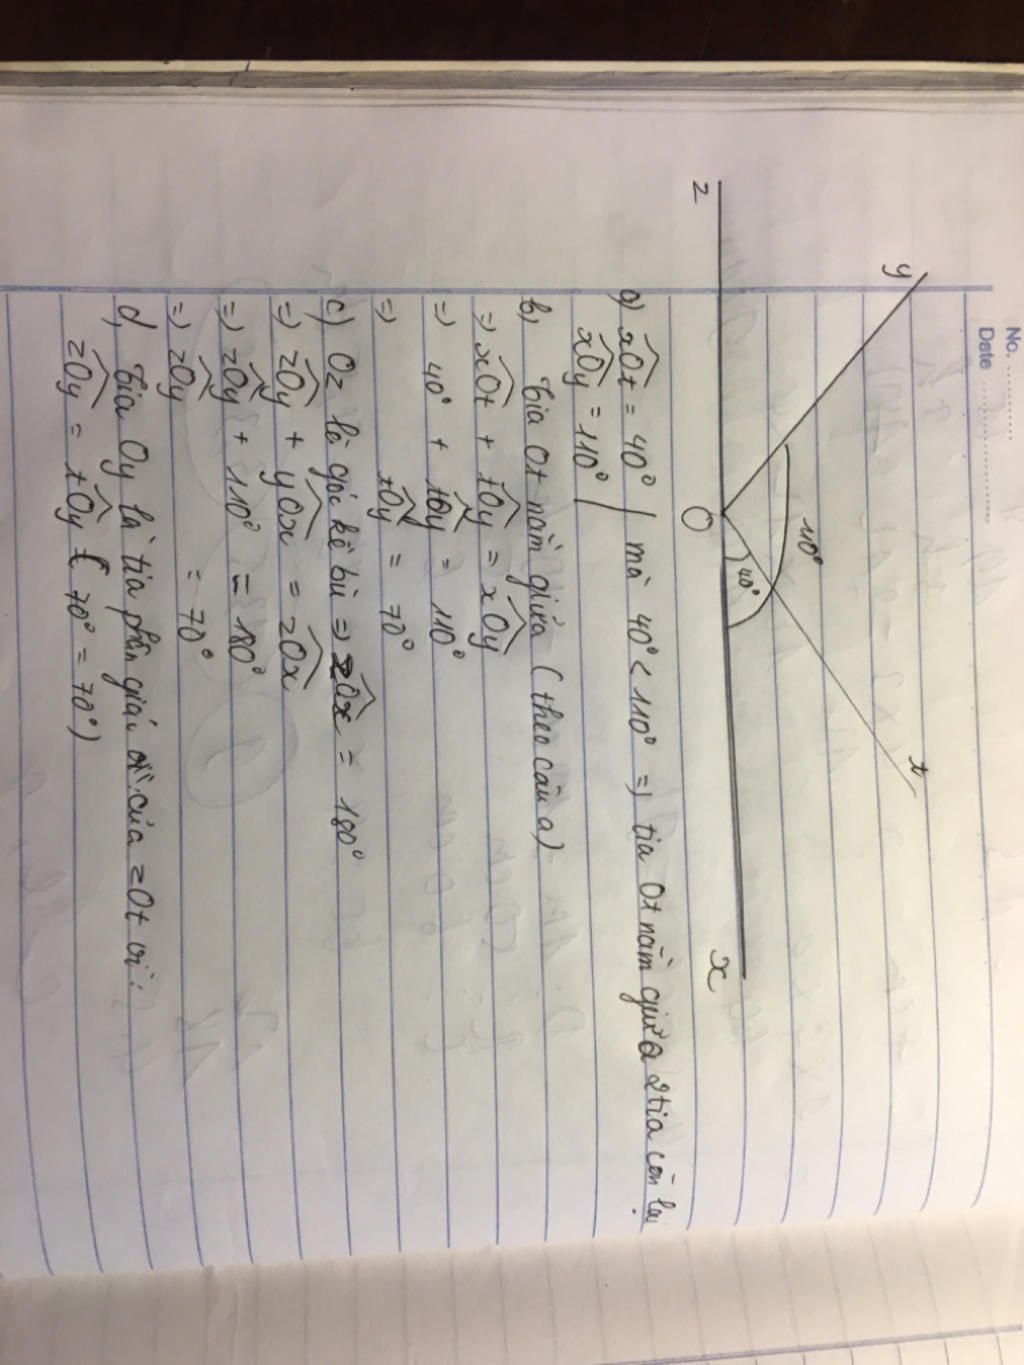 No. ............
Date ............
y
t
110°
40°
z
O
x
a) xOt = 40° / mà 40° < 110° => tia Ot nằm giữa 2 tia còn lại
xOy = 110°
b, Tia Ot nằm giữa (theo câu a)
=> xOt + tOy = xOy
=> 40° + tOy = 110°
=> tOy = 70°
c) Oz là góc kề bù => zOx = 180°
=> zOy + yOx = zOx
=> zOy + 110° = 180°
=> zOy = 70°
d, Tia Oy là tia phân giác của zOt vì:
zOy = tOy ( 70° = 70°)